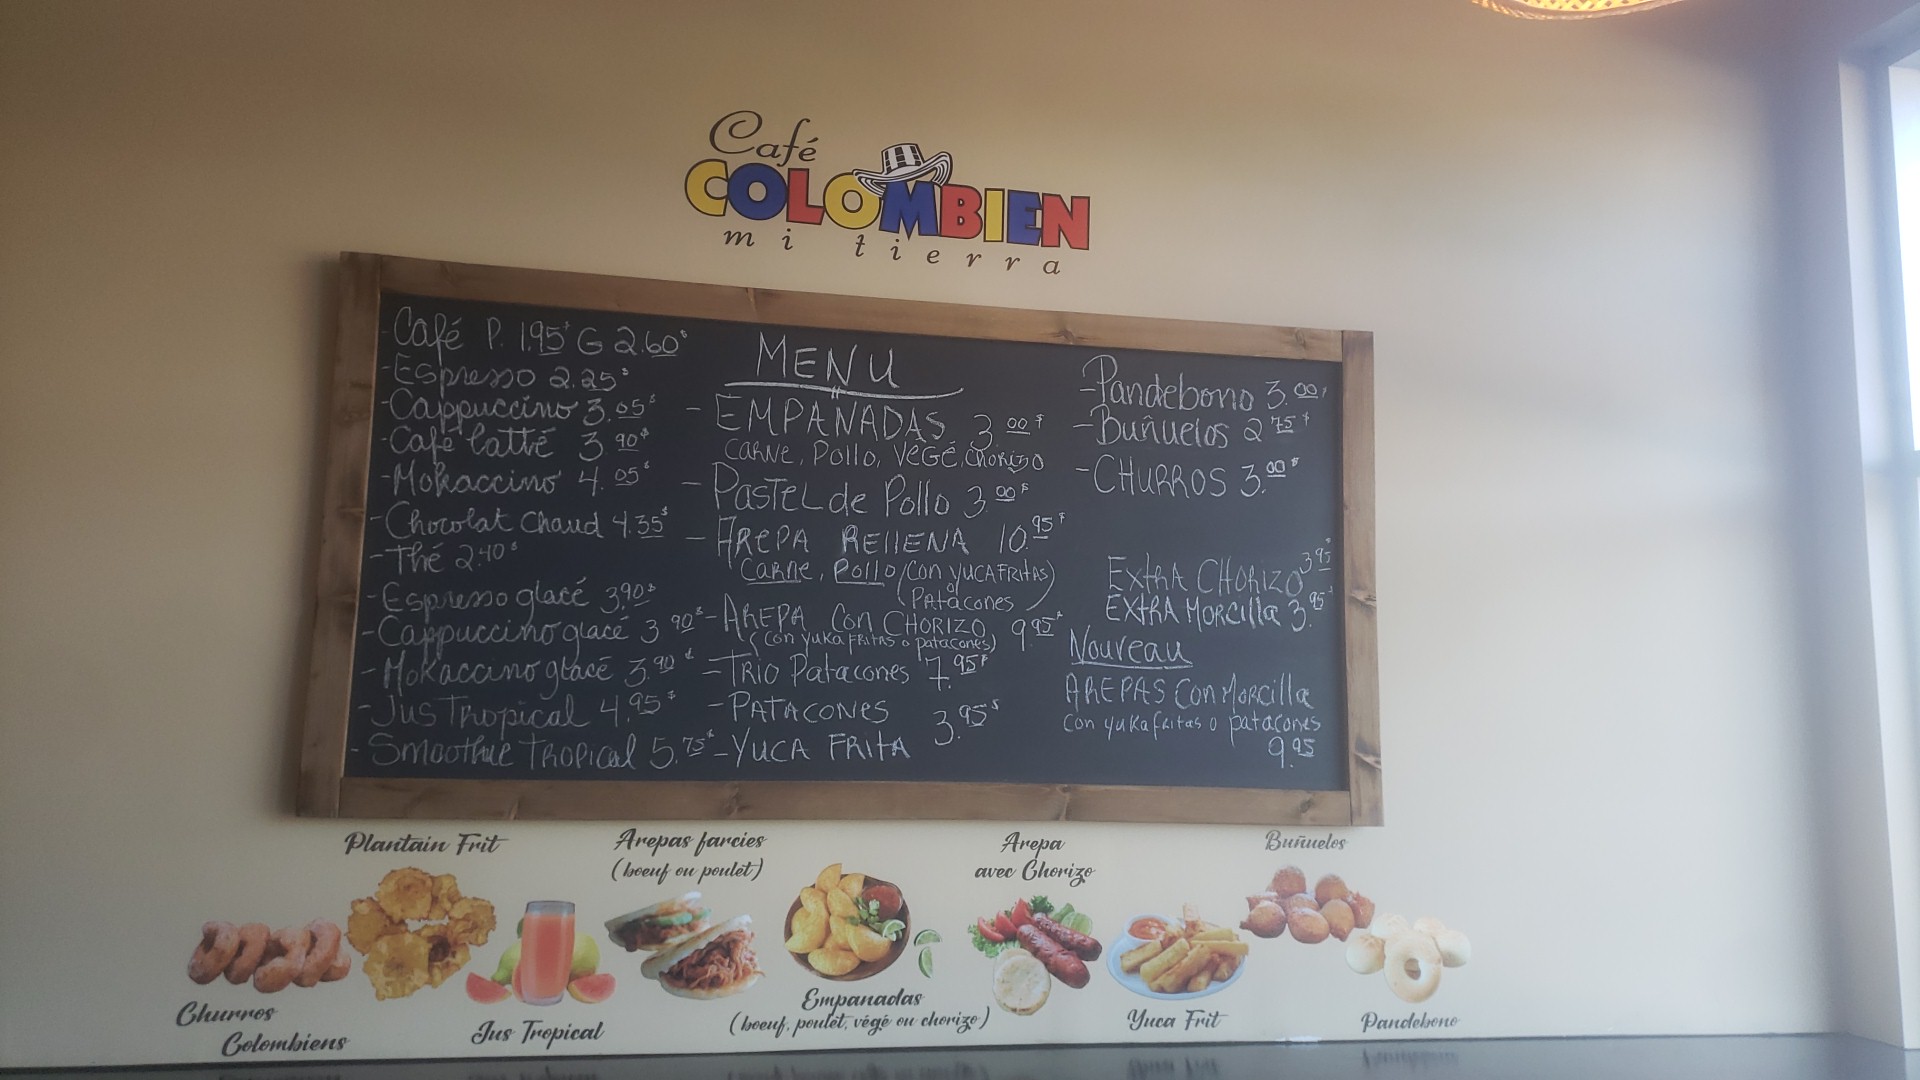 Café
COLOMBIEN
mi tierra
- Café P. 1.95$ G 2.60$
- Espresso 2.25$
- Cappuccino 3.05$
- Café latté 3.90$
- Mokaccino 4.05$
- Chocolat Chaud 4.35$
- Thé 2.40$
- Espresso glacé 3.90$
- Cappuccino glacé 3.90$
- Mokaccino glacé 3.90$
- Jus Tropical 4.95$
- Smoothie Tropical 5.75$
MENU
- EMPANADAS 3.00$
CARNE, Pollo, VÉGÉ, CHORIZO
- PASTEL de Pollo 3.00$
- AREPA RELLENA 10.95$
CARNE, Pollo (Con YUCA FRITAS
o
PATACONES)
- AREPA Con CHORIZO 9.95$
(Con yuka FRITAS o patacones)
- TRIO Patacones 7.95$
- PATACONES
3.95$
- YUCA FRITA
- Pandebono 3.00$
- Buñuelos 2.75$
- CHURROS 3.00$
EXTRA CHORIZO 3.95$
EXTRA MORCILLA 3.95$
Nouveau
AREPAS Con MORCILLA
Con yuka fritas o patacones
9.95
Plantain Frit
Arepas farcies
(boeuf ou poulet)
Arepa
avec Chorizo
Buñuelos
Churros
Colombiens
Jus Tropical
Empanadas
(boeuf, poulet, végé ou chorizo)
Yuca Frit
Pandebono